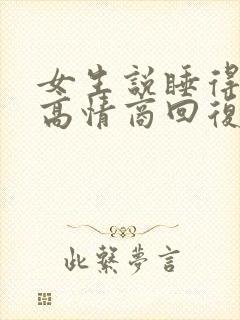 女生説睡得
高情商回復
此繫夢言